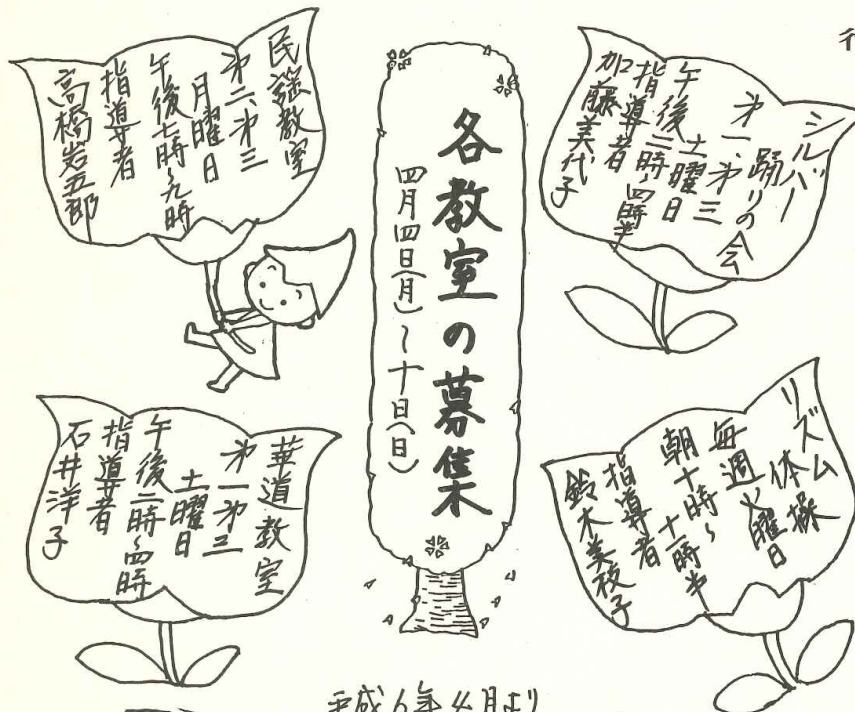 各教室の募集
四月四日(月)~十日(日)
シルバー
踊りの会
第一、第三
土曜日
午後二時~四時半
指導者
加藤美代子
民謡教室
第二、第三
月曜日
午後七時~九時
指導者
高橋岩五郎
リズム
体操
毎週
曜日
朝十時~
指導者
鈴木美枝子
華道教室
第一、第三
土曜日
午後二時~四時
指導者
石井洋子
平成6年4月より